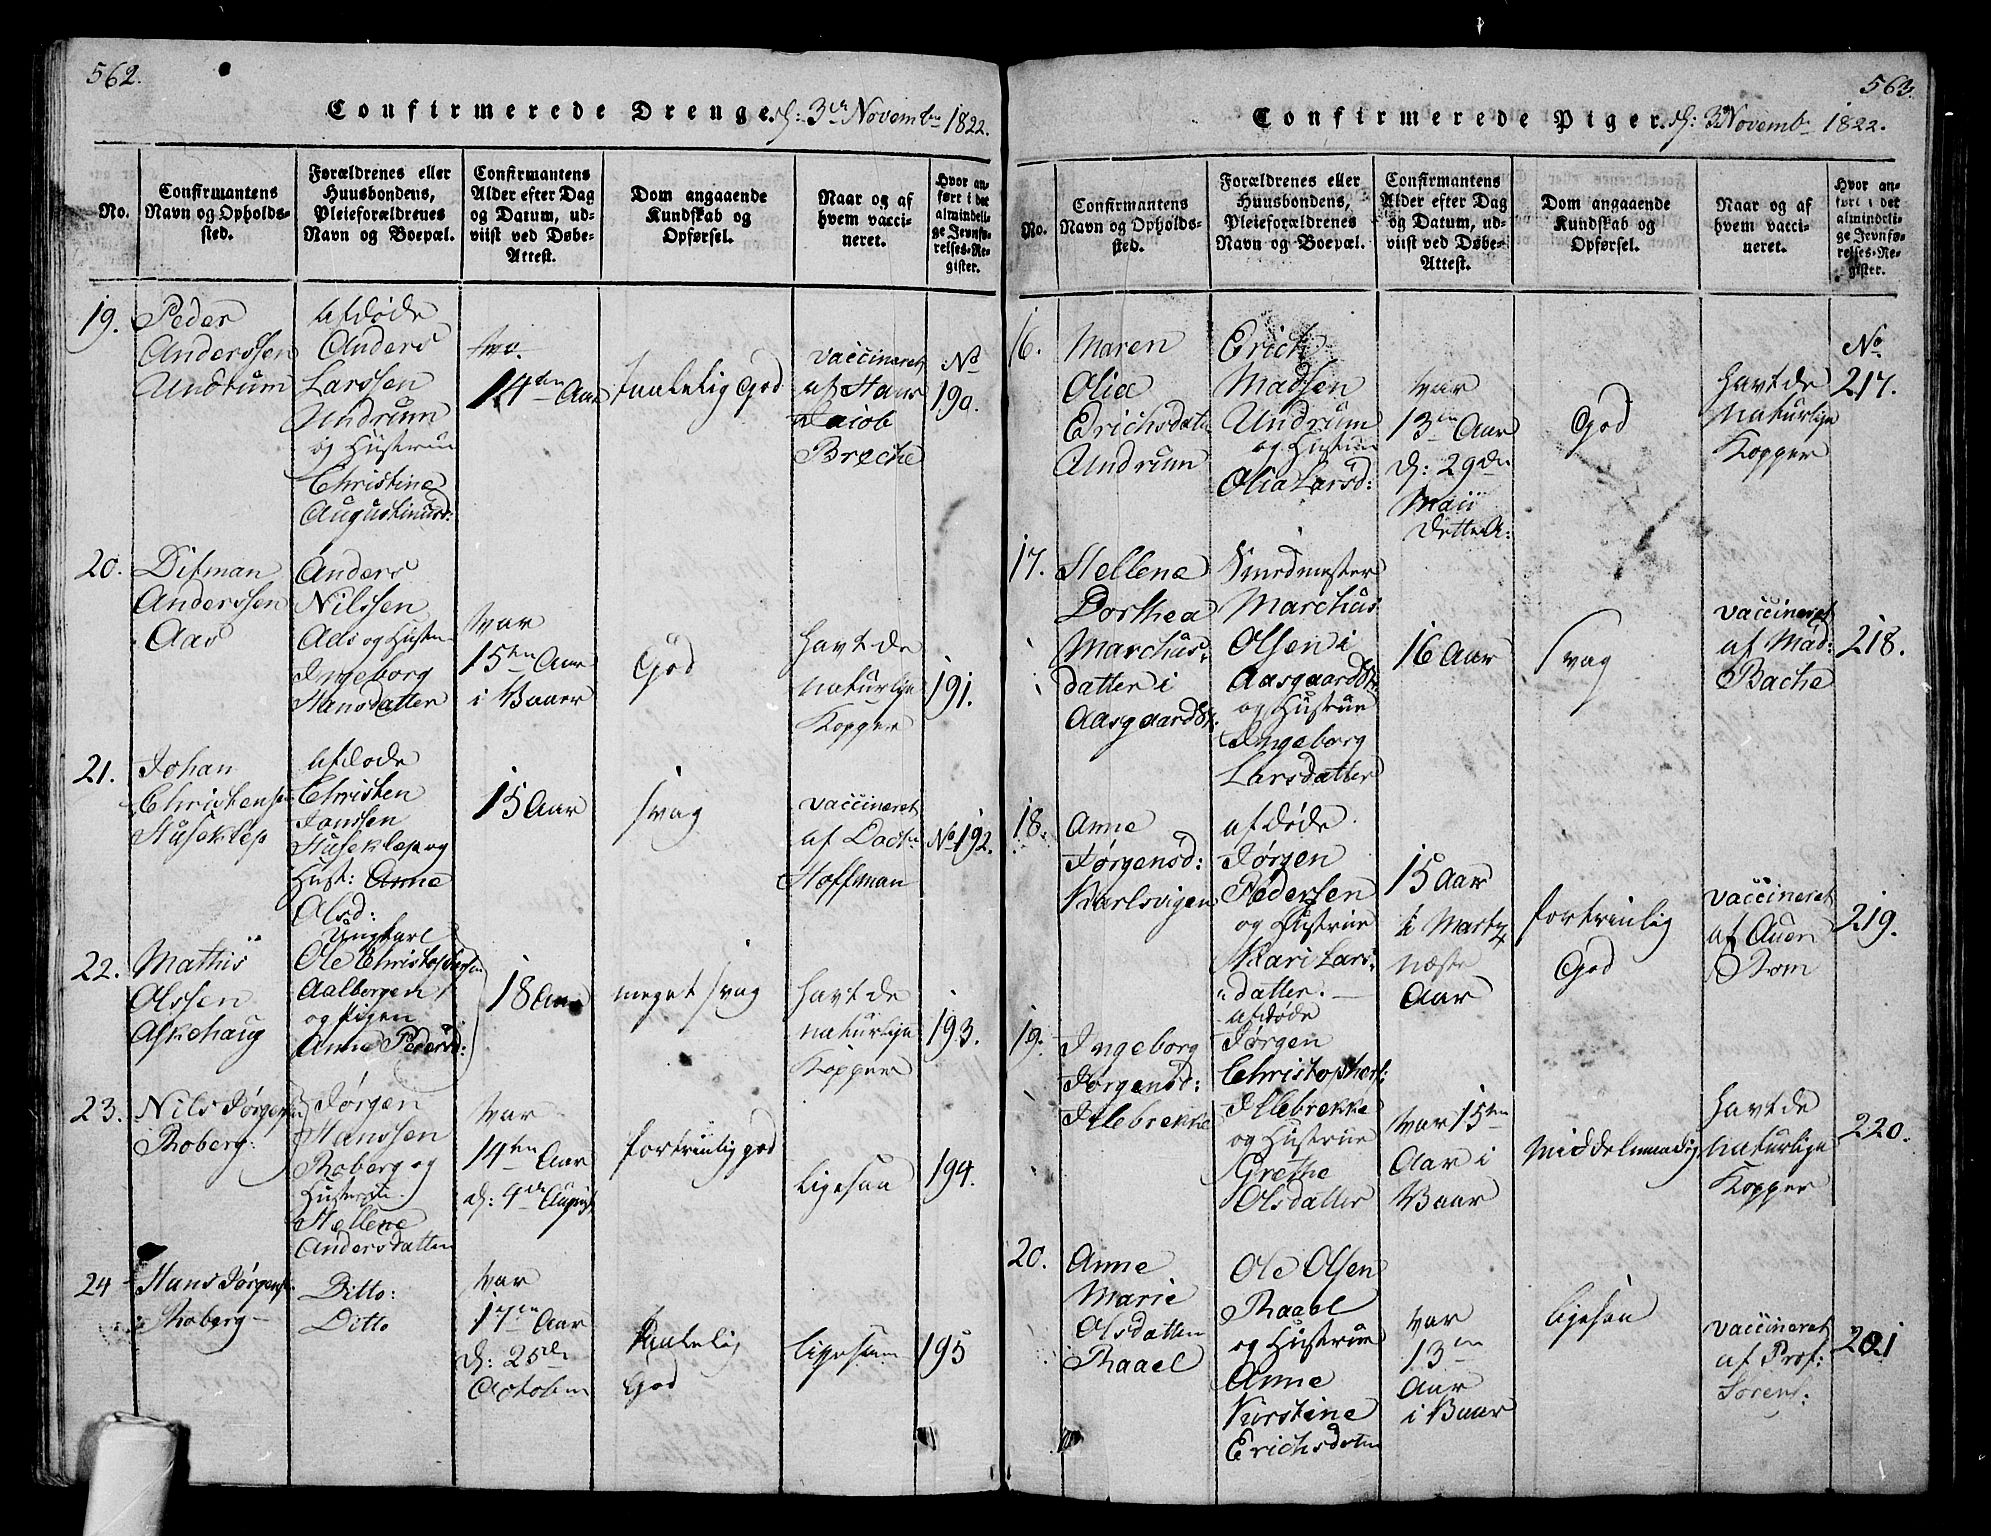 562.
Confirmerede Drenge. d: 3die Novembr 1822.
No.
Confirmantens
Navn og Opholds-
sted.
Forældrenes eller
Huusbondens,
Pleieforældrenes
Navn og Boepæl.
Confirmantens
Alder efter Dag
og Datum, ud-
viist ved Døbe-
Attest.
Dom angaaende
Kundskab og
Opførsel.
Naar og af
hvem vacci-
neret.
Hvor an-
ført i det
almindeli-
ge Jevnfø-
relses-Re-
gister.
19.
Peder
Anderssen
Undrum
afdøde
Anders
Larssen
Undrum
og Hustrue
Christine
Augustinusd:
var
14ten Aar
Taalelig God
vaccineret
af Hans
Jacob
Breche
No
190.
20.
Ditman
Anderssen
Aas
Anders
Nilssen
Aas og Hustru
Ingeborg
Hansdatter
var
15ten Aar
i Vaar
God
havt de
naturlige
Kopper
191.
21.
Johan
Christensen
Huseklep
afdøde
Christen
Jonssen
Huseklep og
Hust: Anne
Olsd:
15 Aar
svag
vaccineret
af Doct:
Hoffman
No 192.
22.
Mathis
Olssen
Askehaug
Ungkarl
Ole Christophersen
Aalborgen
og Pigen
Anne Pedersd:
18 Aar
meget svag
havt de
naturlige
Kopper
193.
23.
Nils Jørgenssen
Roberg:
Jørgen
Hanssen
Roberg og
Hustrue
Hellene
Andersdatter
var
14ten Aar
d: 9de August
fortrinlig god
ligesaa
194.
24
Hans Jørgens:
Roberg
Ditto:
Ditto
var
17ten Aar
d: 25de
Octobr
Taalelig
God
ligesaa
195
563.
Confirmerede Piger. d: 3 Novembr 1822.
No.
Confirmantens
Navn og Opholds-
sted.
Forældrenes eller
Huusbondens,
Pleieforældrenes
Navn og Boepæl.
Confirmantens
Alder efter Dag
og Datum, ud-
viist ved Døbe-
Attest.
Dom angaaende
Kundskab og
Opførsel.
Naar og af
hvem vacci-
neret.
Hvor an-
ført i det
almindeli-
ge Jevnfø-
relses-Re-
gister.
16.
Maren
Olia
Erichsdatter
Undrum
Erich
Madsen
Undrum
og Hustrue
Olia Larsd:
var
13ten Aar
d: 29de
Maii
dette A:
God
havt de
naturlige
Kopper
No
217.
17.
Hellene
Dorthea
Marchus-
datter i
Aasgaardst.
Smedmester
Marchus
Olsen i
Aasgaardst.
og Hustrue
Ingeborg
Larsdatter
16 Aar
svag
vaccineret
af Mad:
Bache
218.
18.
Anne
Jørgensd:
Karlsvigen
afdøde
Jørgen
Pedersen
og Hustrue
Kari Lars-
datter.
15 Aar
i Marty
næste
Aar
fortrinlig
God
vaccineret
af Auen
Rom
219.
19.
Ingeborg
Jørgensd:
Illebrekke
afdøde
Jørgen
Christophers:
Illebrekke
og Hustrue
Grethe
Olsdatter
var 15ten
Aar i
Vaar
Middelmaadig
havt de
naturlige
Kopper
220.
20.
Anne
Marie
Olsdatter
Raael
Ole Olsen
Raael
og Hustrue
Anne
Kirstine
Erichsdatter
var
13ten
Aar
i Vaar
ligesaa
vaccineret
af Prof:
Sørens:
221